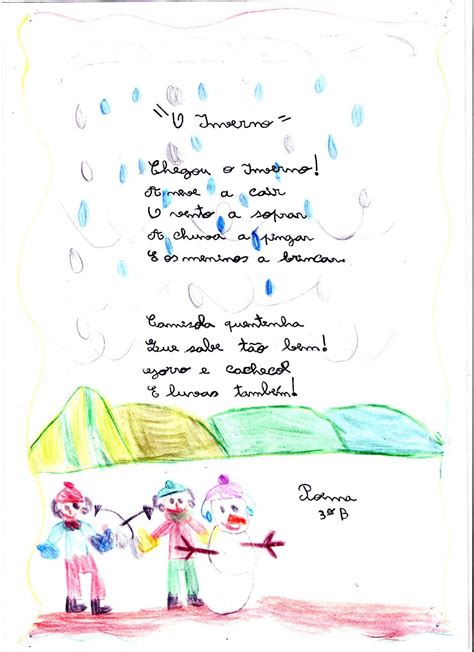 "O Inverno"
Chegou o Inverno!
A neve a cair
O vento a soprar
A chuva a pingar
E os meninos a brincar.
Camisola quentinha
Que sabe tão bem!
Gorro e cachecol
E luvas também!
Poema
3º B